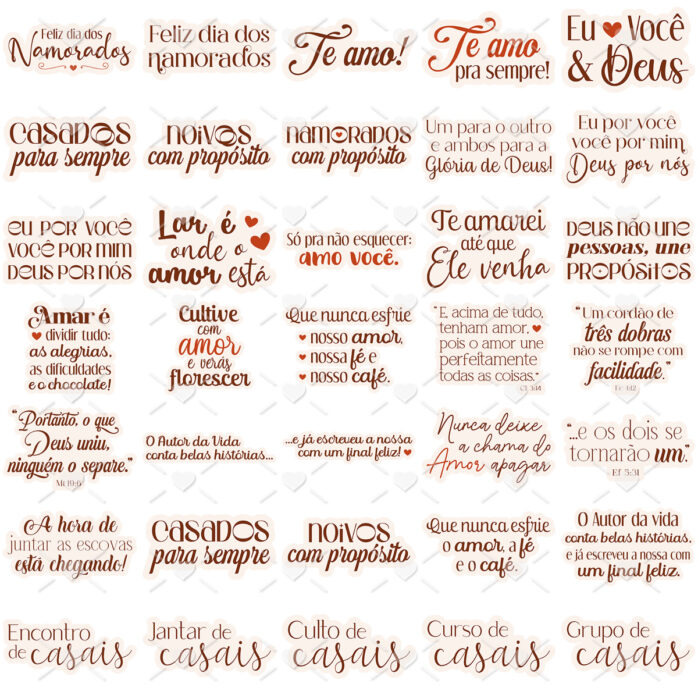 Feliz dia dos
Namorados
Feliz dia dos
namorados
Te amo!
Te amo
pra sempre!
Eu Você
& Deus
CASADOS
para sempre
NOIVOS
com propósito
NAMORADOS
com propósito
Um para o outro
e ambos para a
Glória de Deus!
Eu por você
você por mim
Deus por nós
EU POR VOCÊ
VOCÊ POR MIM
DEUS POR NÓS
Lar é
onde o
amor está
Só pra não esquecer:
amo você.
Te amarei
até que
Ele venha
DEUS NÃO UNE
pessoas, une
PROPÓSITOS
Amar é
dividir tudo:
as alegrias,
as dificuldades
e o chocolate!
Cultive
com
amor
e verás
florescer
Que nunca esfrie
nosso amor,
nossa fé e
nosso café.
"E acima de tudo,
tenham amor,
pois o amor une
perfeitamente
todas as coisas."
Cl 3:14
"Um cordão de
três dobras
não se rompe com
facilidade."
Ec 4:12
"Portanto, o que
Deus uniu,
ninguém o separe."
Mt 19:6
O Autor da Vida
conta belas histórias...
...e já escreveu a nossa
com um final feliz!
Nunca deixe
a chama do
Amor apagar
"...e os dois se
tornarão um."
Ef 5:31
A hora de
juntar as escovas
está chegando!
CASADOS
para sempre
NOIVOS
com propósito
Que nunca esfrie
o amor, a fé
e o café.
O Autor da vida
conta belas histórias,
e já escreveu a nossa com
um final feliz.
Encontro
de casais
Jantar de
casais
Culto de
casais
Curso de
casais
Grupo de
casais